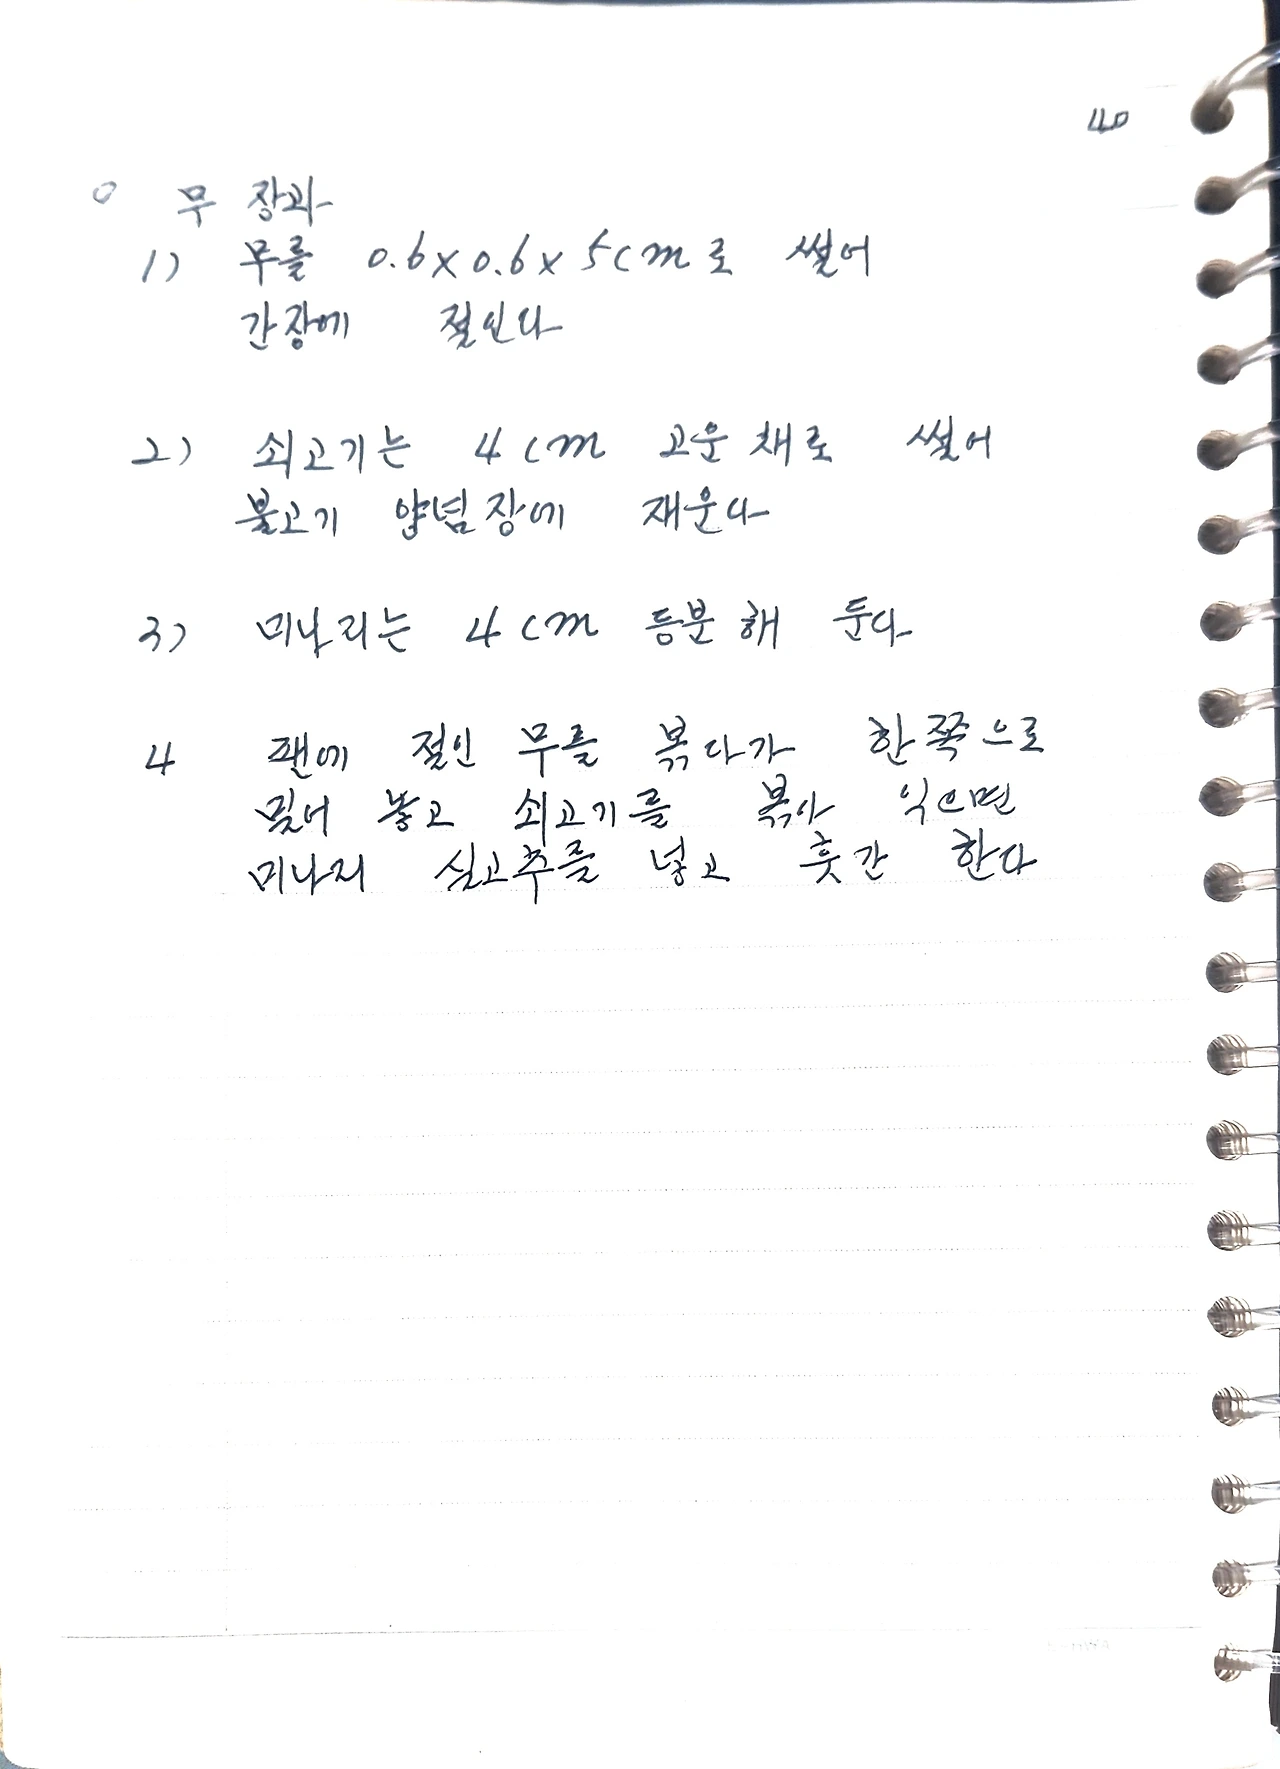 40
○ 무 장과
1) 무를 0.6×0.6×5cm로 썰어
간장에 절인다
2) 쇠고기는 4cm 고운 채로 썰어
불고기 양념장에 재운다
3) 미나리는 4cm 등분해 둔다
4 팬에 절인 무를 볶다가 한쪽으로
밀어 놓고 쇠고기를 볶아 익으면
미나리 실고추를 넣고 훗간 한다